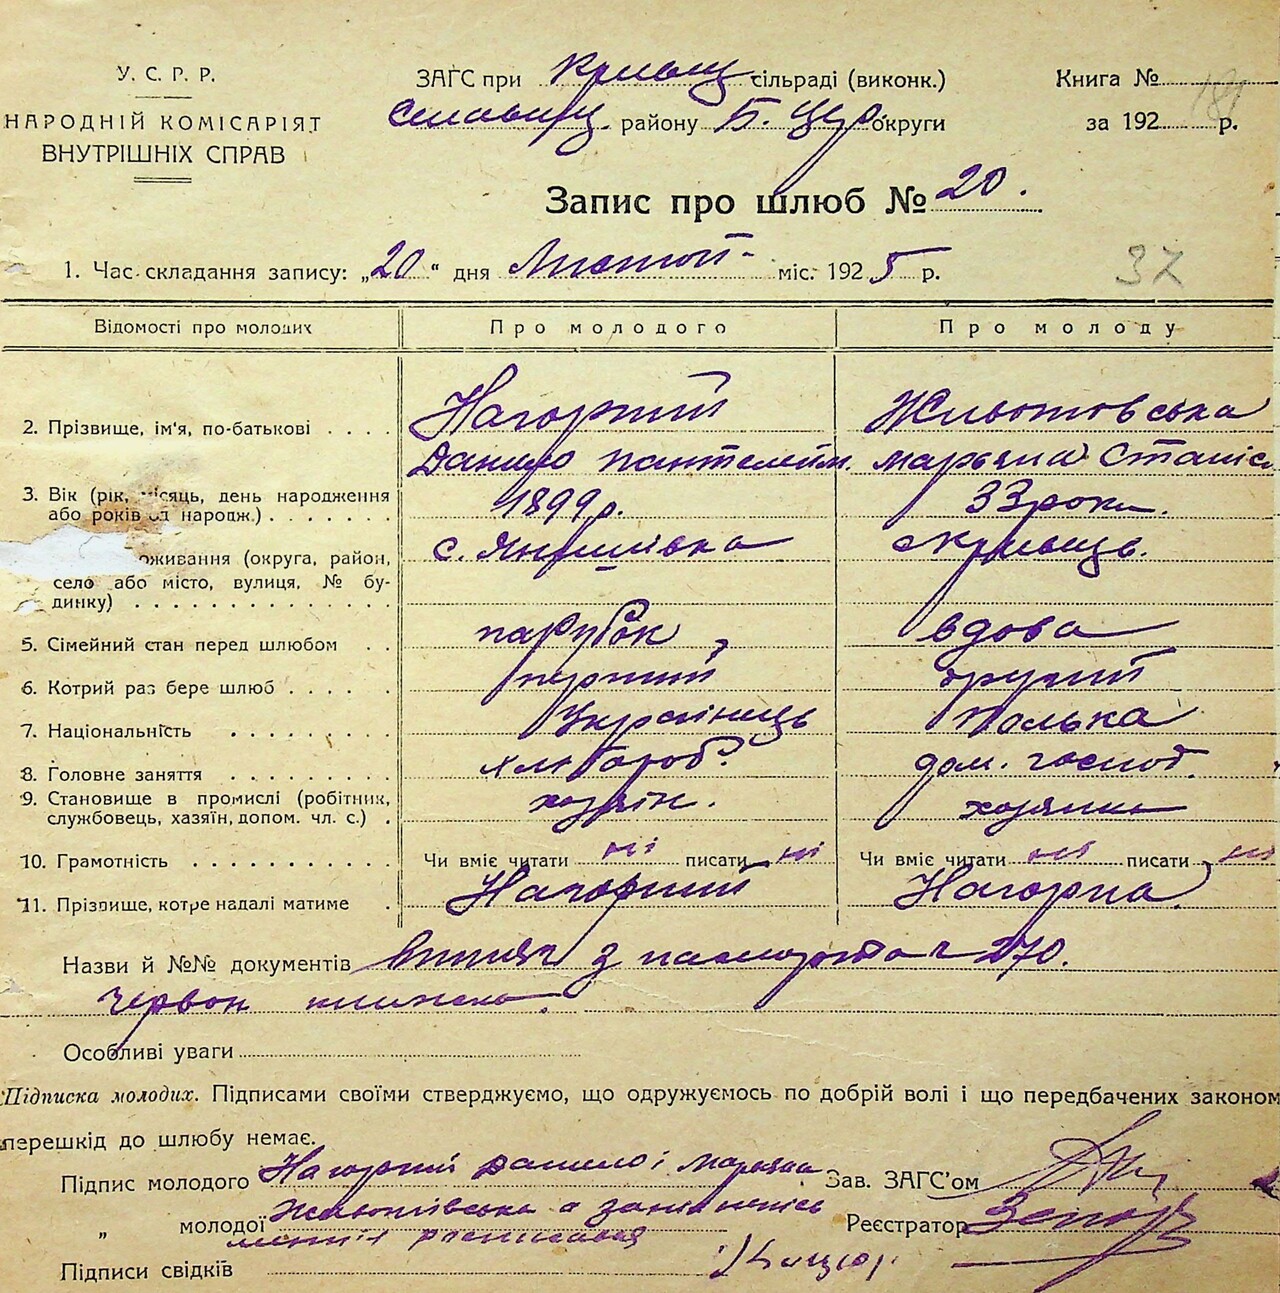 У. С. Р. Р.
НАРОДНІЙ КОМІСАРІЯТ
ВНУТРІШНІХ СПРАВ
ЗАГС при сільраді (виконк.)
району Б. Цер. округи
Книга №
за 192 р.
Запис про шлюб № 20.
1. Час складання запису: „20“ дня Листоп міс. 1925 р.
37
Відомості про молодих
Про молодого
Про молоду
2. Прізвище, ім'я, по-батькові
Нагорний
Данило Пантелейм.
Жлютовська
Марьяна Станіс
3. Вік (рік, місяць, день народження
або років од народж.)
1899 р.
33 роки.
оживання (округа, район,
село або місто, вулиця, № бу-
динку)
с. Янушівка
5. Сімейний стан перед шлюбом
парубок
вдова
6. Котрий раз бере шлюб
перший
другий
7. Національність
Українець
Полька
8. Головне заняття
хлібороб.
дом. господ.
9. Становище в промислі (робітник,
службовець, хазяїн, допом. чл. с.)
хозяїн.
хозяйка
10. Грамотність
Чи вміє читати ні писати ні
Чи вміє читати ні писати ні
11. Прізвище, котре надалі матиме
Нагорний
Нагорна.
Назви й №№ документів з 270.
червон книжка.
Особливі уваги
Підписка молодих. Підписами своїми стверджуємо, що одружуємось по добрій волі і що передбачених законом
перешкід до шлюбу немає.
Підпис молодого Нагорний Данило і Марьяна
Зав. ЗАГС'ом
„ молодої Жлютівська а
Реєстратор
Підписи свідків